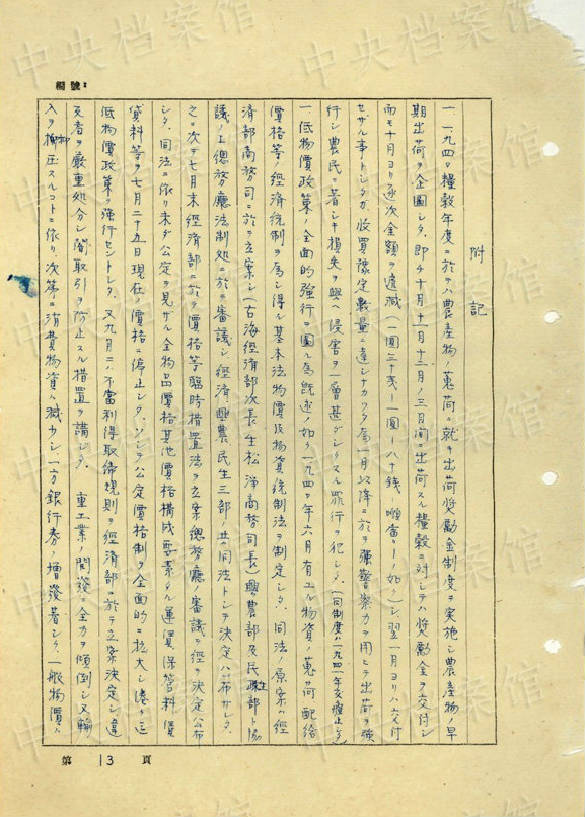 編號:
附記
一、一九四〇糧穀年度ニ於テハ農産物ノ蒐荷ニ就キ出荷奨勵金制度ヲ実施シ農産物ノ早
期出荷ヲ企圖シタ、即チ十月十一月十二月ノ三月間ニ出荷スル糧穀ニ対シテハ奨勵金ヲ交付シ
而モ十月ヨリ逐次金額ヲ遞減(一圓三十戋ー一圓ー八十錢、噸當リーノ如ク)シ翌一月ヨリハ交付
セザル事トシタガ、收買豫定数量ニ達シナカッタ為一月以降ニ於テ強警察力ヲ用ヒテ出荷ヲ強
行シ農民ニ著シキ損失ヲ與ヘ侵害ヲ一層甚ダシクスル罪行ヲ犯シタ、(同制度ハ一九四一年廃止シタ)
一、低物價政策ノ全面的強行ヲ圖ル為既述ノ如ク一九四〇年六月有ユル物資ノ蒐荷配給
價格等ノ經済統制ヲ為シ得ル基本法物價及物資統制法ヲ制定シタ、同法ノ原案ハ經
済部商務司ニ於テ立案シ(古海經済部次長生松淨商務司長)興農部及民生部ト協
議ノ上總務廳法制処ニ於テ審議シ、經済、興農民生三部ノ共同法トシテ決定公布サレタ、
之ニ次デ七月末經済部ニ於テ價格等臨時措置法ヲ立案總務廳ノ審議ヲ經テ決定公布
シタ、同法ニ依リ未ダ公定ヲ見ザル全物品價格其他價格構成要素タル運賃保管料賃
貸料等ヲ七月二十五日現在ノ價格ニ停止シタ、ソシテ公定價格制ヲ全面的ニ拡大シ
低物價政策ヲ強行セントシタ、又九月ニハ不當利得取締規則ヲ經済部ニ於テ立案決定シ違
反者ヲ嚴重処分シ闇取引ヲ防止スル措置ヲ講ジタ、重工業ノ開発ニ全力ヲ傾倒シ又輸
入ヲ抑圧スルコトニ依リ次第ニ消費物資ハ減少シ、一方銀行券ノ増發著シク、一般物價ハ
第 13 頁
中央档案馆